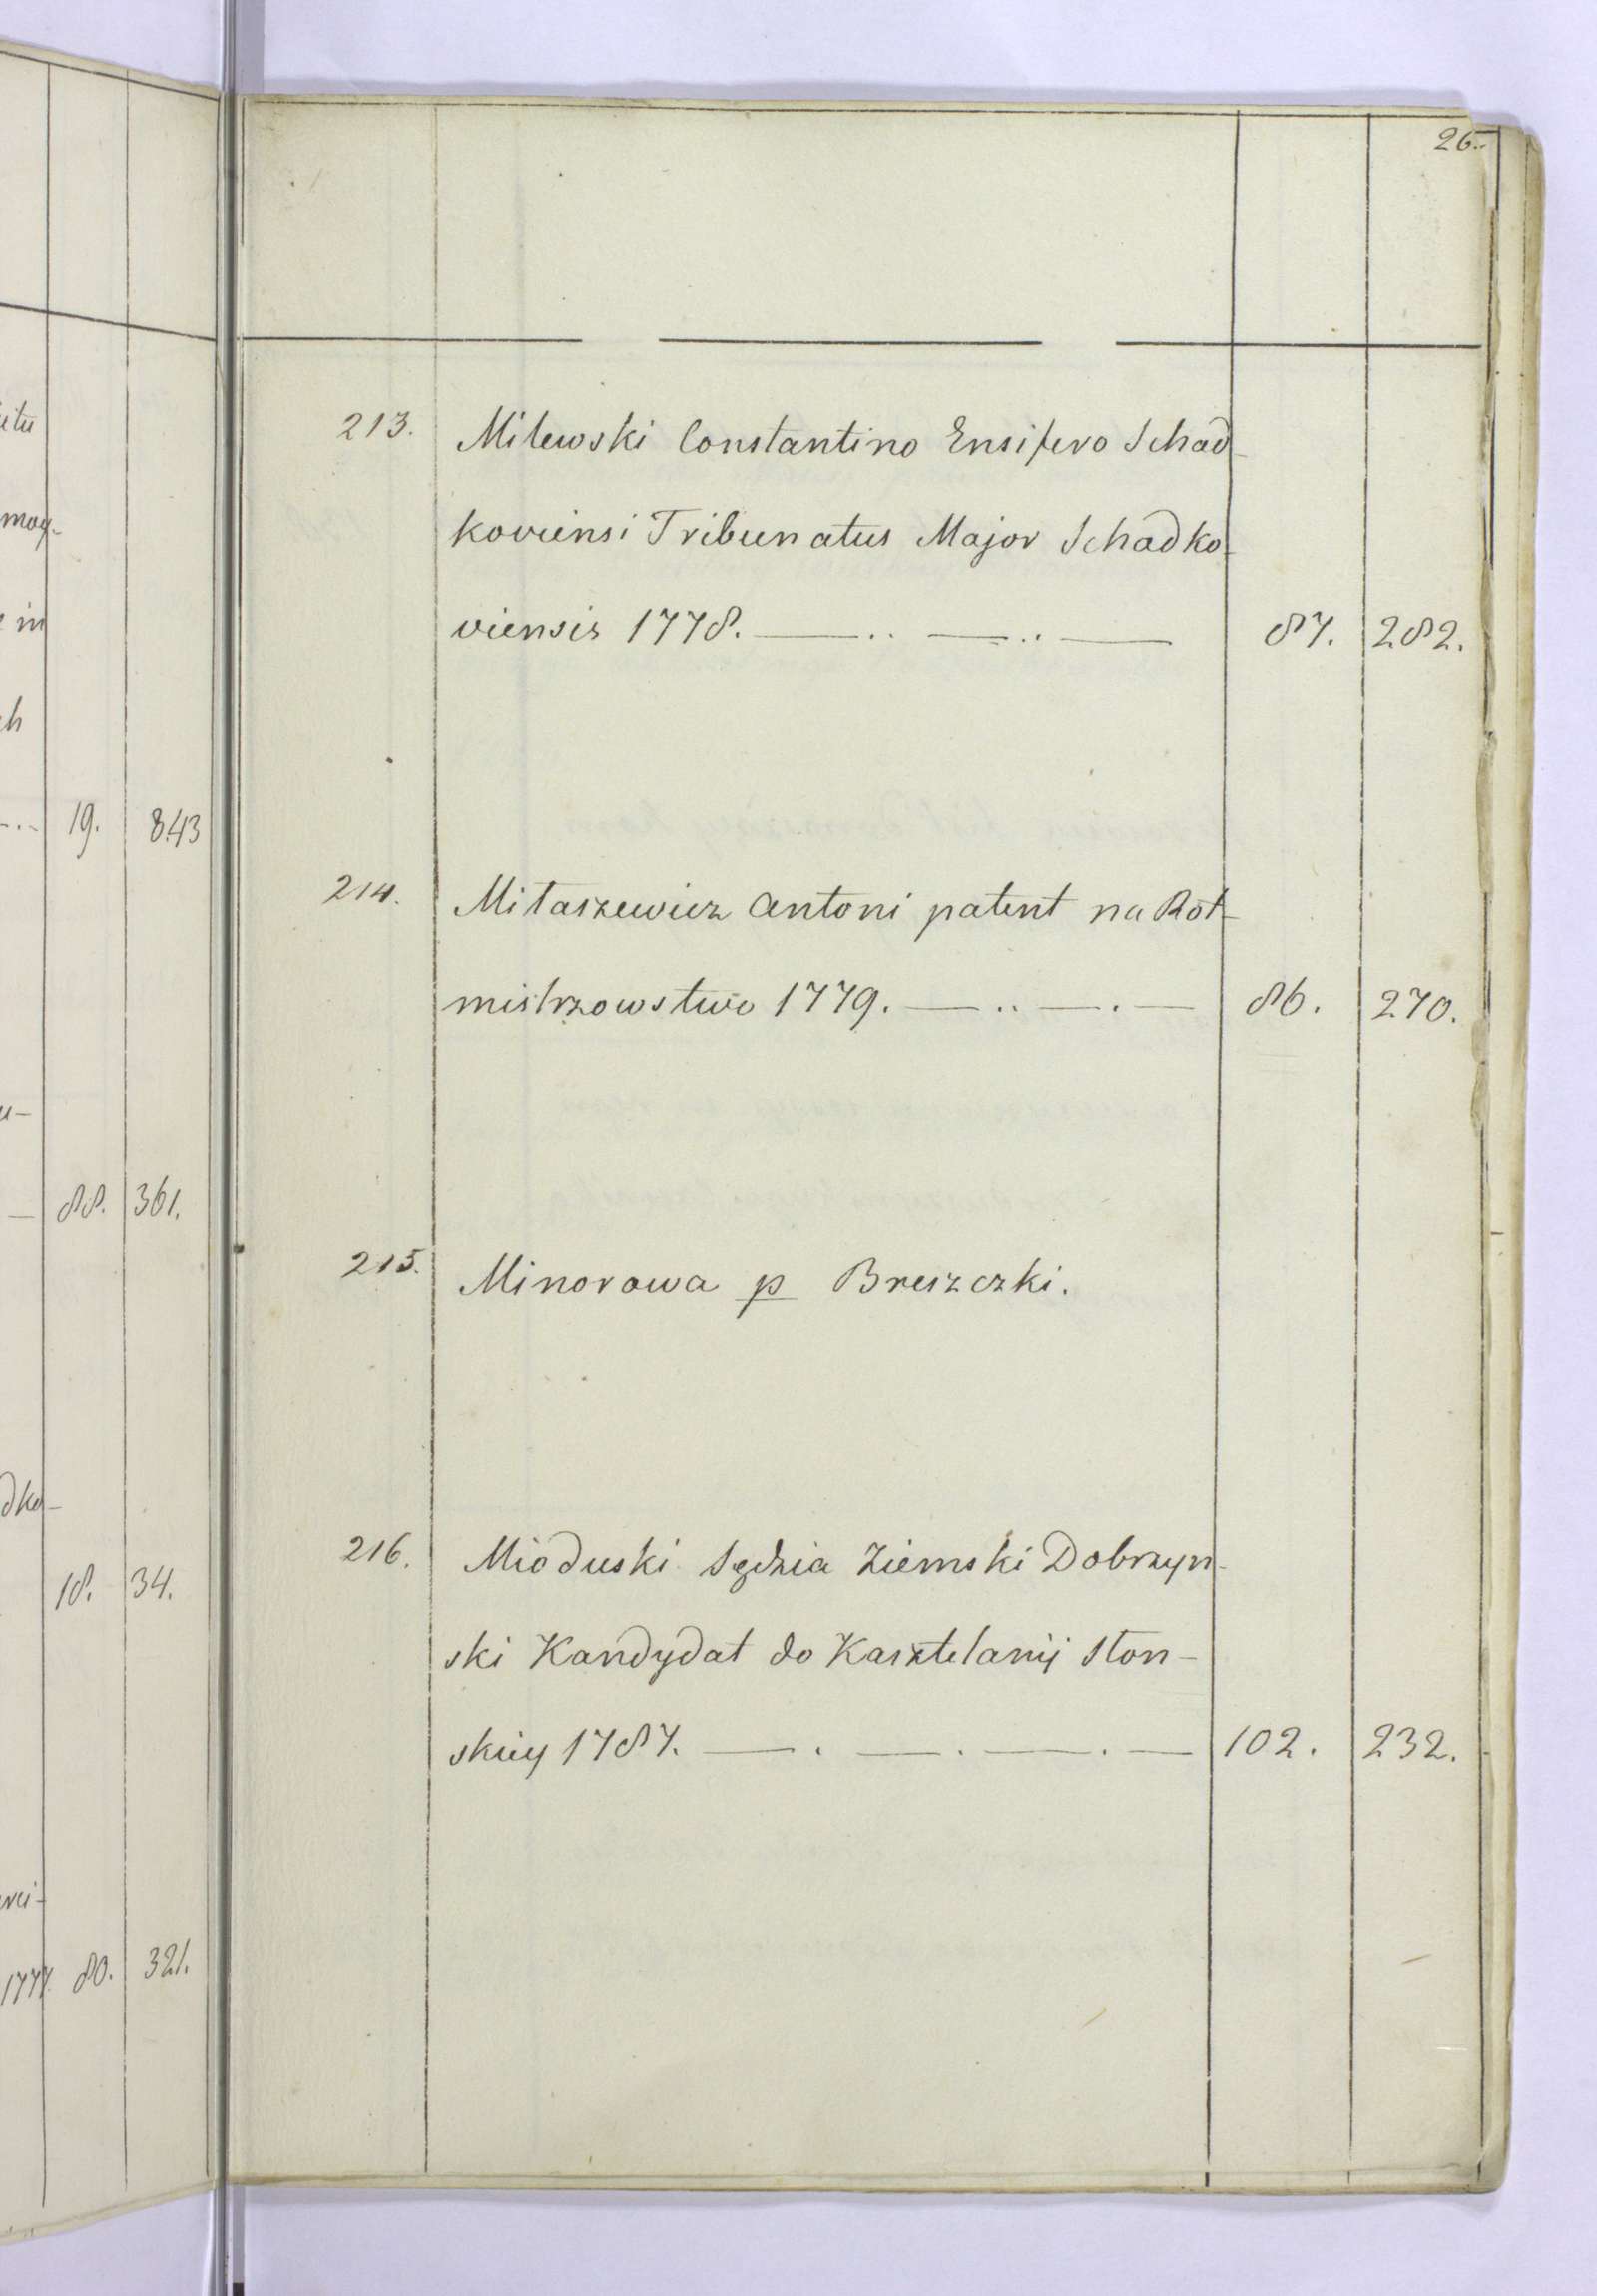 itu
may-
in
ch
19. 843
u-
88. 361.
dko-
18. 34.
1777. 80. 321.
26.
213. Milewski Constantino Ensifero Schad-
koviensi Tribunatus Major Schadko-
viensis 1778. 87. 282.
214. Mitaszewicz Antoni patent na Rot-
mistrzowstwo 1779. 86. 270.
215. Minorowa p Breszczki.
216. Mioduski Sędzia Ziemski Dobrzyn-
ski Kandydat do Kasztelanij Slon-
skiey 1787. 102. 232.